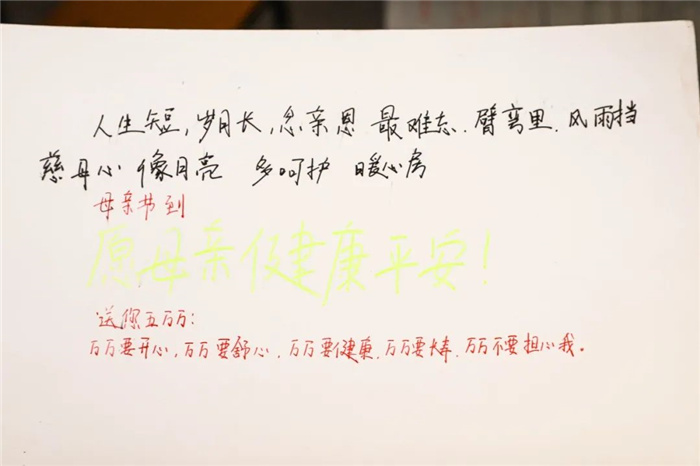 人生短,岁月长,念亲恩 最难忘.臂弯里.风雨挡
慈母心 像月亮 多呵护 暖心房
母亲节到
愿母亲健康平安!
送你五万万:
万万要开心,万万要舒心,万万要健康,万万要长寿,万万不要担心我。